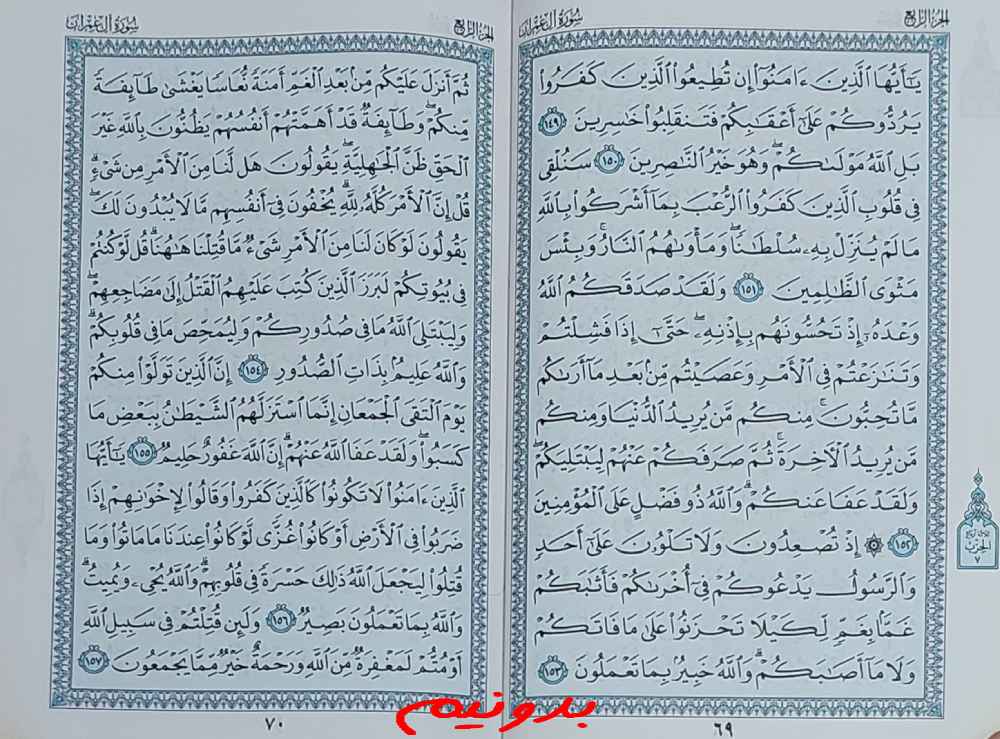 الجزء الرابع
سورة آل عمران
يَٰٓأَيُّهَا ٱلَّذِينَ ءَامَنُوٓا۟ إِن تُطِيعُوا۟ ٱلَّذِينَ كَفَرُوا۟
يَرُدُّوكُمْ عَلَىٰٓ أَعْقَٰبِكُمْ فَتَنقَلِبُوا۟ خَٰسِرِينَ ١٤٩
بَلِ ٱللَّهُ مَوْلَىٰكُمْ ۖ وَهُوَ خَيْرُ ٱلنَّٰصِرِينَ ١٥٠ سَنُلْقِى
فِى قُلُوبِ ٱلَّذِينَ كَفَرُوا۟ ٱلرُّعْبَ بِمَآ أَشْرَكُوا۟ بِٱللَّهِ
مَا لَمْ يُنَزِّلْ بِهِۦ سُلْطَٰنًا ۖ وَمَأْوَىٰهُمُ ٱلنَّارُ ۚ وَبِئْسَ
مَثْوَى ٱلظَّٰلِمِينَ ١٥١ وَلَقَدْ صَدَقَكُمُ ٱللَّهُ
وَعْدَهُۥٓ إِذْ تَحُسُّونَهُم بِإِذْنِهِۦ ۖ حَتَّىٰٓ إِذَا فَشِلْتُمْ
وَتَنَٰزَعْتُمْ فِى ٱلْأَمْرِ وَعَصَيْتُم مِّنۢ بَعْدِ مَآ أَرَىٰكُم
مَّا تُحِبُّونَ ۚ مِنكُم مَّن يُرِيدُ ٱلدُّنْيَا وَمِنكُم
مَّن يُرِيدُ ٱلْءَاخِرَةَ ۚ ثُمَّ صَرَفَكُمْ عَنْهُمْ لِيَبْتَلِيَكُمْ ۖ
وَلَقَدْ عَفَا عَنكُمْ ۗ وَٱللَّهُ ذُو فَضْلٍ عَلَى ٱلْمُؤْمِنِينَ
١٥٢ ۞ إِذْ تُصْعِدُونَ وَلَا تَلْوُۥنَ عَلَىٰٓ أَحَدٍ
وَٱلرَّسُولُ يَدْعُوكُمْ فِىٓ أُخْرَىٰكُمْ فَأَثَٰبَكُمْ
غَمًّۢا بِغَمٍّ لِّكَيْلَا تَحْزَنُوا۟ عَلَىٰ مَا فَاتَكُمْ
وَلَا مَآ أَصَٰبَكُمْ ۗ وَٱللَّهُ خَبِيرٌۢ بِمَا تَعْمَلُونَ ١٥٣
الحزب
٧
٦٩
الجزء الرابع
سورة آل عمران
ثُمَّ أَنزَلَ عَلَيْكُم مِّنۢ بَعْدِ ٱلْغَمِّ أَمَنَةً نُّعَاسًا يَغْشَىٰ طَآئِفَةً
مِّنكُمْ ۖ وَطَآئِفَةٌ قَدْ أَهَمَّتْهُمْ أَنفُسُهُمْ يَظُنُّونَ بِٱللَّهِ غَيْرَ
ٱلْحَقِّ ظَنَّ ٱلْجَٰهِلِيَّةِ ۖ يَقُولُونَ هَل لَّنَا مِنَ ٱلْأَمْرِ مِن شَىْءٍ ۗ
قُلْ إِنَّ ٱلْأَمْرَ كُلَّهُۥ لِلَّهِ ۗ يُخْفُونَ فِىٓ أَنفُسِهِم مَّا لَا يُبْدُونَ لَكَ ۖ
يَقُولُونَ لَوْ كَانَ لَنَا مِنَ ٱلْأَمْرِ شَىْءٌ مَّا قُتِلْنَا هَٰهُنَا ۗ قُل لَّوْ كُنتُمْ
فِى بُيُوتِكُمْ لَبَرَزَ ٱلَّذِينَ كُتِبَ عَلَيْهِمُ ٱلْقَتْلُ إِلَىٰ مَضَاجِعِهِمْ ۖ
وَلِيَبْتَلِىَ ٱللَّهُ مَا فِى صُدُورِكُمْ وَلِيُمَحِّصَ مَا فِى قُلُوبِكُمْ ۗ
وَٱللَّهُ عَلِيمٌۢ بِذَاتِ ٱلصُّدُورِ ١٥٤ إِنَّ ٱلَّذِينَ تَوَلَّوْا۟ مِنكُمْ
يَوْمَ ٱلْتَقَى ٱلْجَمْعَانِ إِنَّمَا ٱسْتَزَلَّهُمُ ٱلشَّيْطَٰنُ بِبَعْضِ مَا
كَسَبُوا۟ ۖ وَلَقَدْ عَفَا ٱللَّهُ عَنْهُمْ ۗ إِنَّ ٱللَّهَ غَفُورٌ حَلِيمٌ ١٥٥ يَٰٓأَيُّهَا
ٱلَّذِينَ ءَامَنُوا۟ لَا تَكُونُوا۟ كَٱلَّذِينَ كَفَرُوا۟ وَقَالُوا۟ لِإِخْوَٰنِهِمْ إِذَا
ضَرَبُوا۟ فِى ٱلْأَرْضِ أَوْ كَانُوا۟ غُزًّى لَّوْ كَانُوا۟ عِندَنَا مَا مَاتُوا۟ وَمَا
قُتِلُوا۟ لِيَجْعَلَ ٱللَّهُ ذَٰلِكَ حَسْرَةً فِى قُلُوبِهِمْ ۗ وَٱللَّهُ يُحْىِۦ وَيُمِيتُ ۗ
وَٱللَّهُ بِمَا تَعْمَلُونَ بَصِيرٌ ١٥٦ وَلَئِن قُتِلْتُمْ فِى سَبِيلِ ٱللَّهِ
أَوْ مُتُّمْ لَمَغْفِرَةٌ مِّنَ ٱللَّهِ وَرَحْمَةٌ خَيْرٌ مِّمَّا يَجْمَعُونَ ١٥٧
٧٠
بدونيم